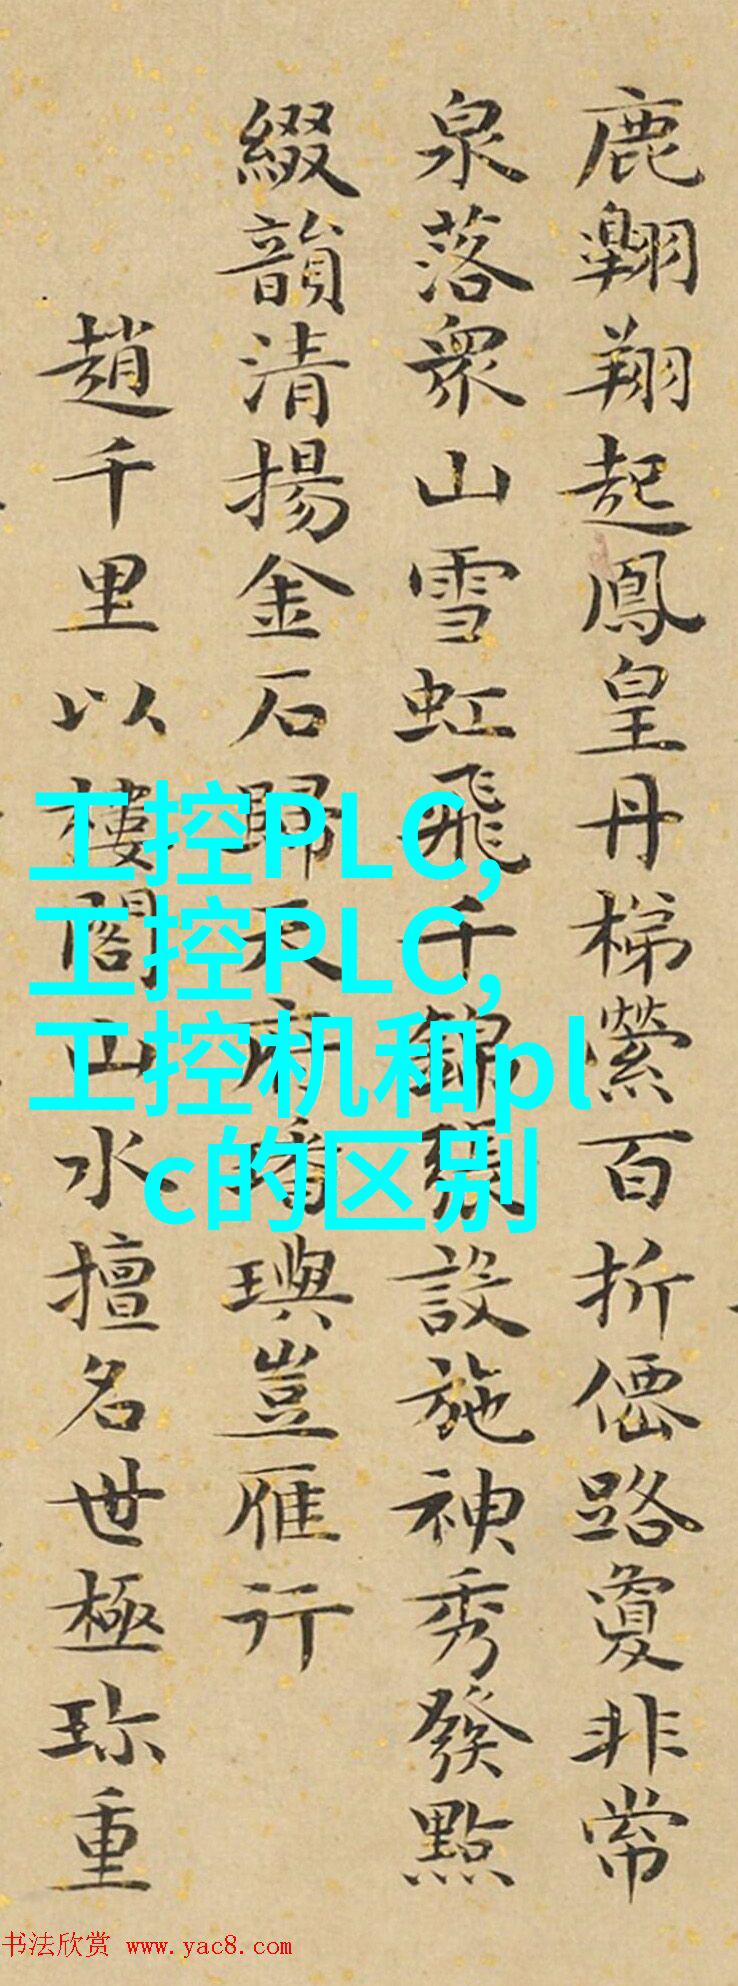 鹿翱翔起鳳皇丹梯縈百折僊路夐非常
泉落衆山雪虹飛千錦張設施神秀發點
綴韻清揚金石歸天府璠璵豈雁行
趙千里以樓閣山水擅名世極珎重
工控PLC,
工控PLC,
工控机和pl
c的区别
书法欣赏 www.yac8.com